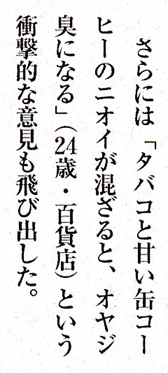 さらには「タバコと甘い缶コー
ヒーのニオイが混ざると、オヤジ
臭になる」（24歳・百貨店）という
衝撃的な意見も飛び出した。